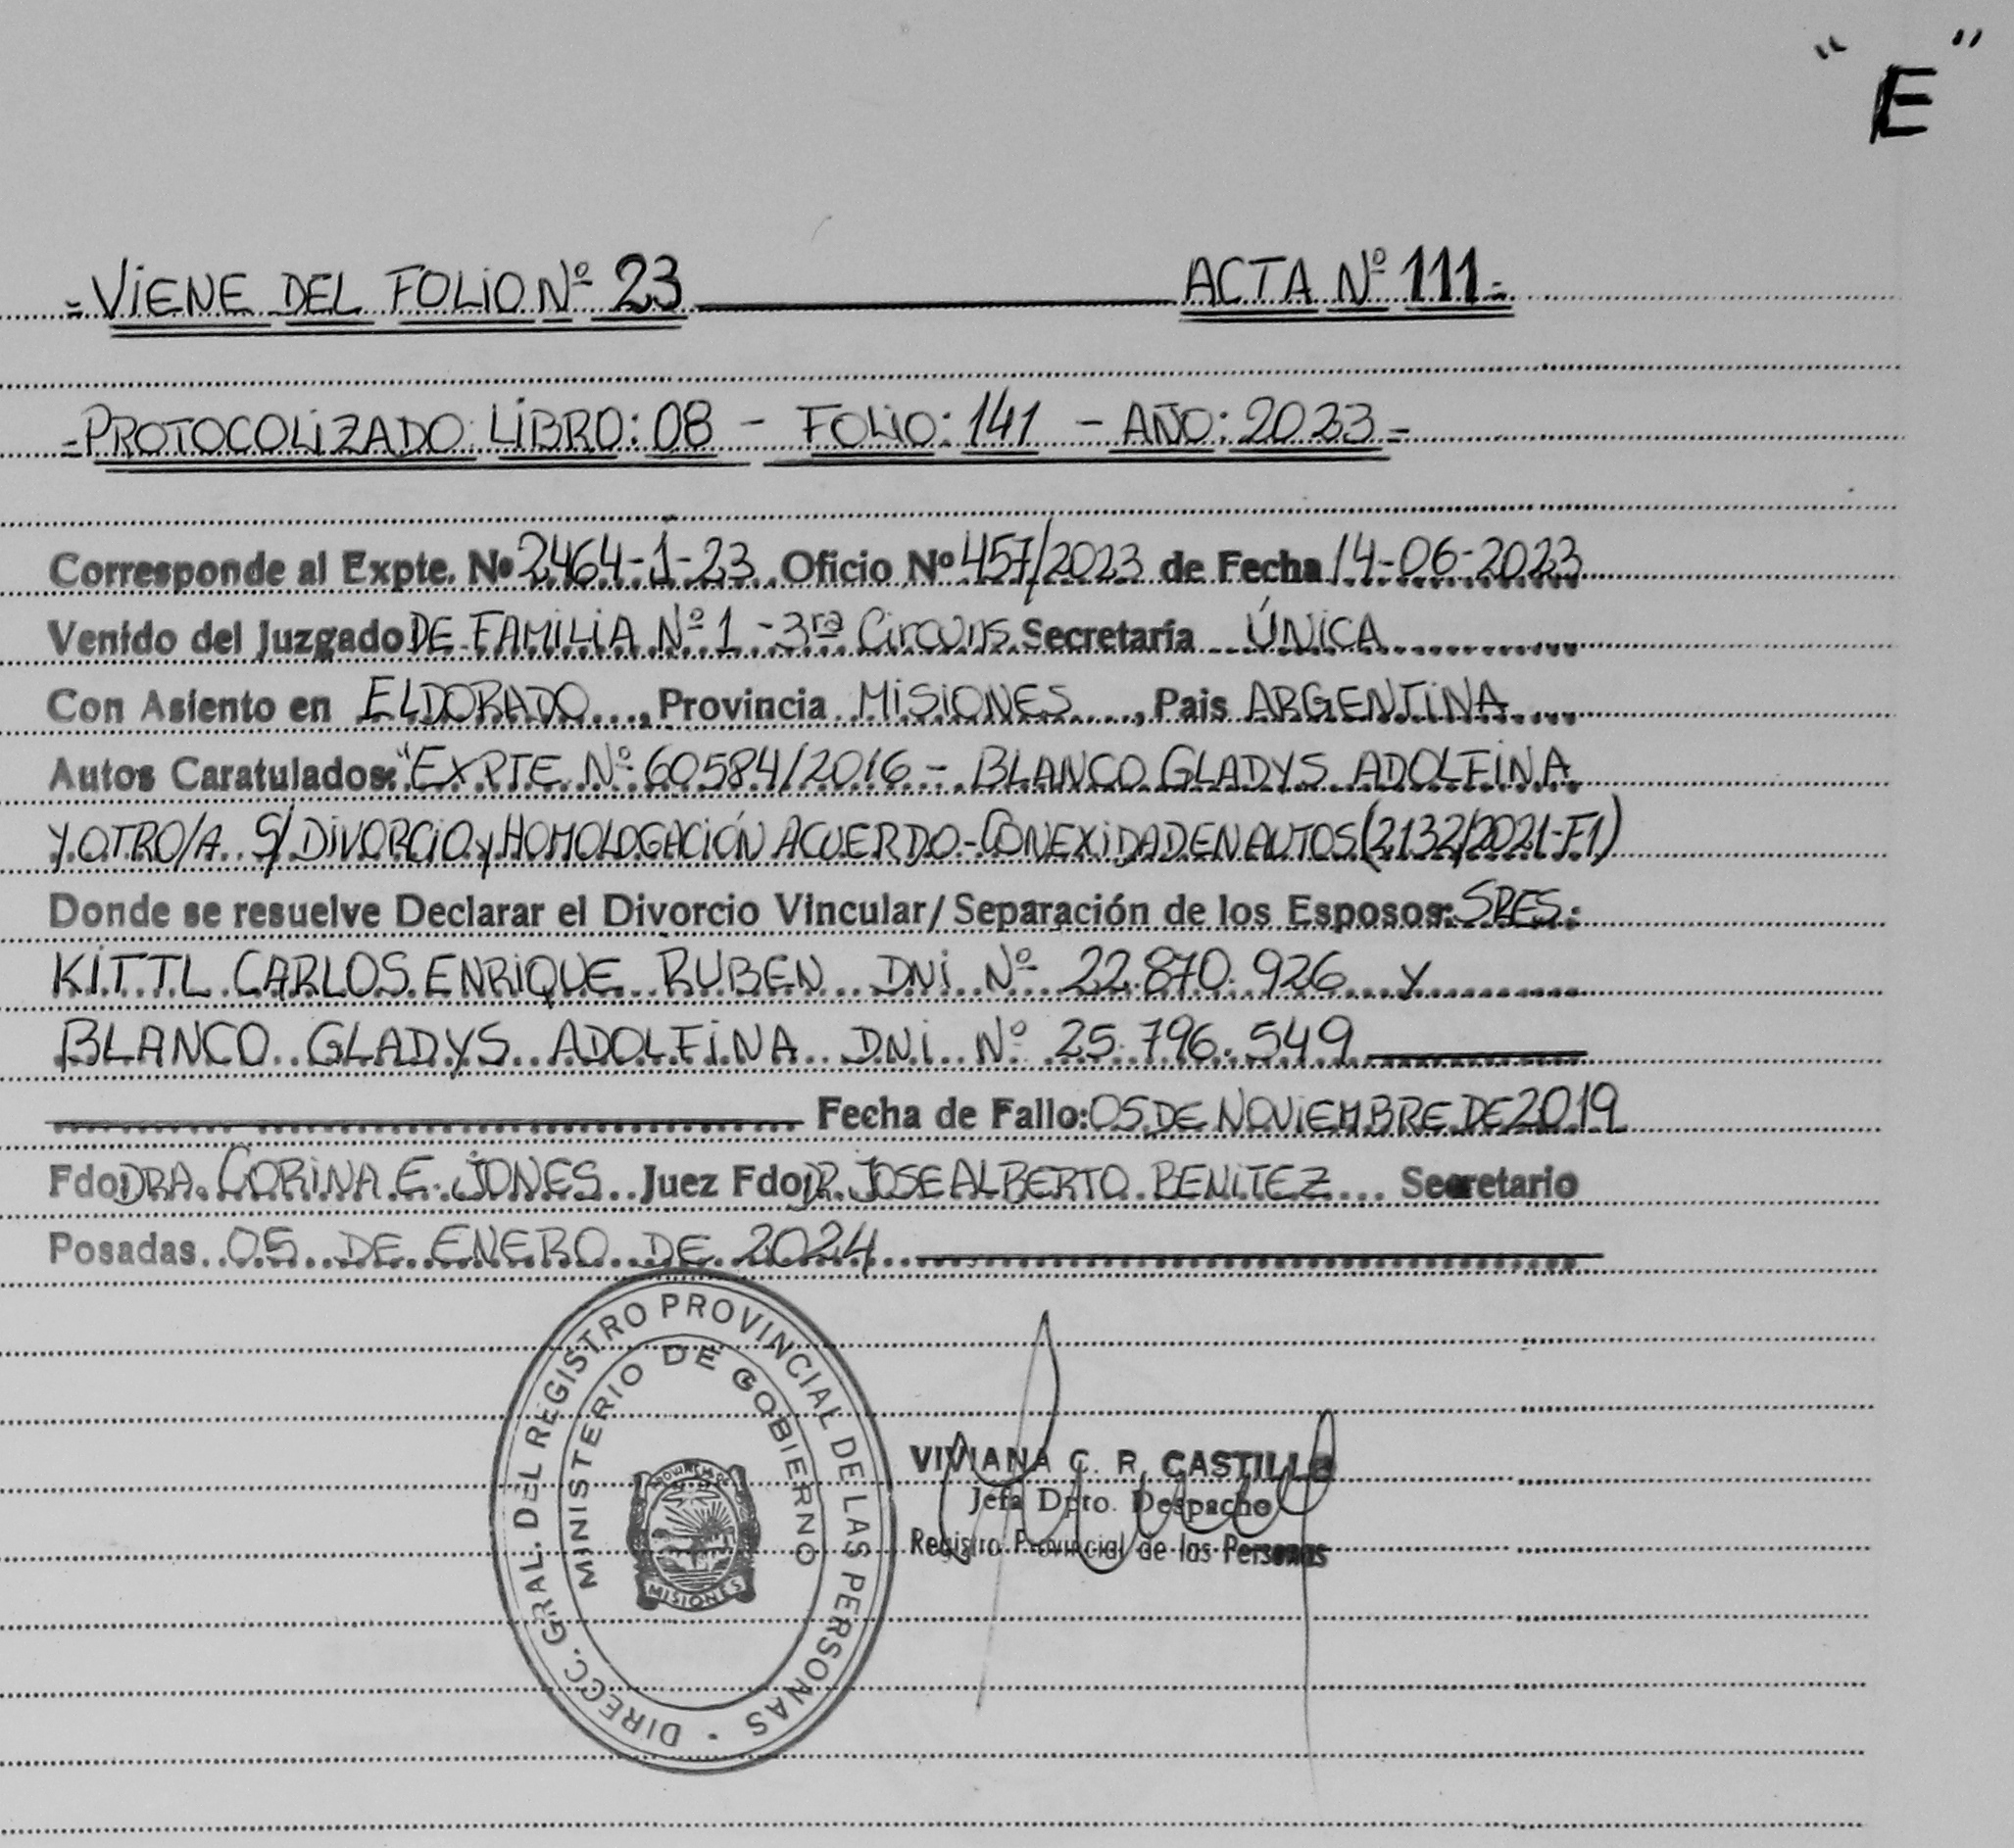 "E"
=VIENE DEL FOLIO Nº 23 ACTA Nº 111=
=PROTOCOLIZADO: LIBRO: 08 - FOLIO: 141 - AÑO: 2023=
Corresponde al Expte. Nº 2464-1-23 Oficio Nº 457/2023 de Fecha 14-06-2023
Venido del Juzgado DE FAMILIA Nº 1 - 3ra Circuns. Secretaría ÚNICA
Con Asiento en ELDORADO, Provincia MISIONES, Pais ARGENTINA
Autos Caratulados: "EXPTE. Nº 60584/2016 - BLANCO GLADYS ADOLFINA
Y OTRO/A S/ DIVORCIO y HOMOLOGACIÓN ACUERDO - CONEXIDAD EN AUTOS (2132/2021-F1)
Donde se resuelve Declarar el Divorcio Vincular/Separación de los Esposos: SRES.:
KITTL CARLOS ENRIQUE RUBEN DNI Nº 22.870.926 y
BLANCO GLADYS ADOLFINA DNI Nº 25.796.549
Fecha de Fallo: 05 DE NOVIEMBRE DE 2019
Fdo. DRA. CORINA E. JONES Juez Fdo. DR. JOSE ALBERTO BENITEZ Secretario
Posadas 05 DE ENERO DE 2024
DIRECC. GRAL. DEL REGISTRO PROVINCIAL DE LAS PERSONAS
MINISTERIO DE GOBIERNO
PROVINCIA DE
MISIONES
VIVIANA C. R. CASTILLO
Jefa Dpto. Despacho
Registro Provincial de las Personas